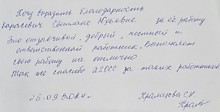 Хочу выразить благодарность
Борисевич Светлане Юрьевне за её работу
Это отзывчивый, добрый, честный и
ответственный работник. Выполняет
свою работу на отлично
Так же спасибо за таких работников
25.09.